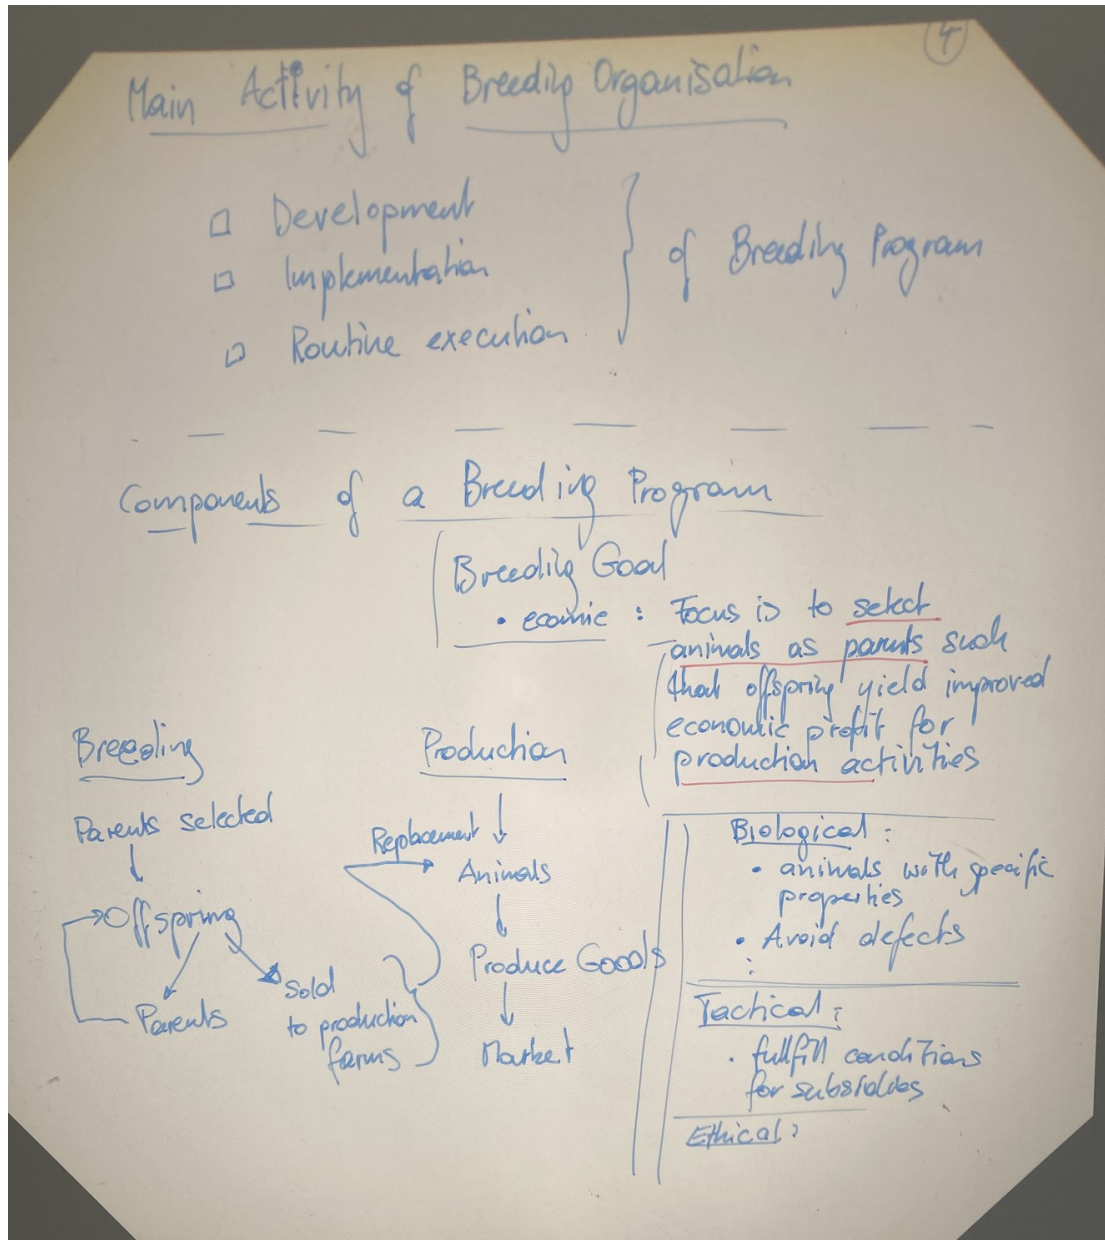 4
Main Activity of Breeding Organisation
□ Development
□ Implementation
□ Routine execution
} of Breeding Program
Components of a Breeding Program
Breeding Goal
• ecomic : Focus is to select
animals as parents such
that offspring yield improved
economic profit for
production activities
Breeding
Parents selected
Offspring
Parents
Sold
to production
farms
Production
Replacement
Animals
Produce Goods
Market
Biological :
• animals with specific
properties
• Avoid defects
:
Tactical :
• fullfill conditions
for subsidies
Ethical :